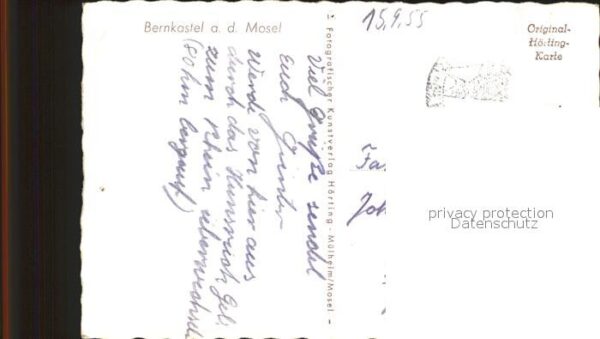 Bernkastel a. d. Mosel
15.9.55
Original-
Hörting-
Karte
Viel Grüße sendet
Euch Günter
Werde von hier aus
durch das Hunsrück Geb.
zum Rhein überwechseln
(80 km bergauf)
Fotografischer Kunstverlag Hörting - Mülheim/Mosel -
Fa
Joh
privacy protection
Datenschutz